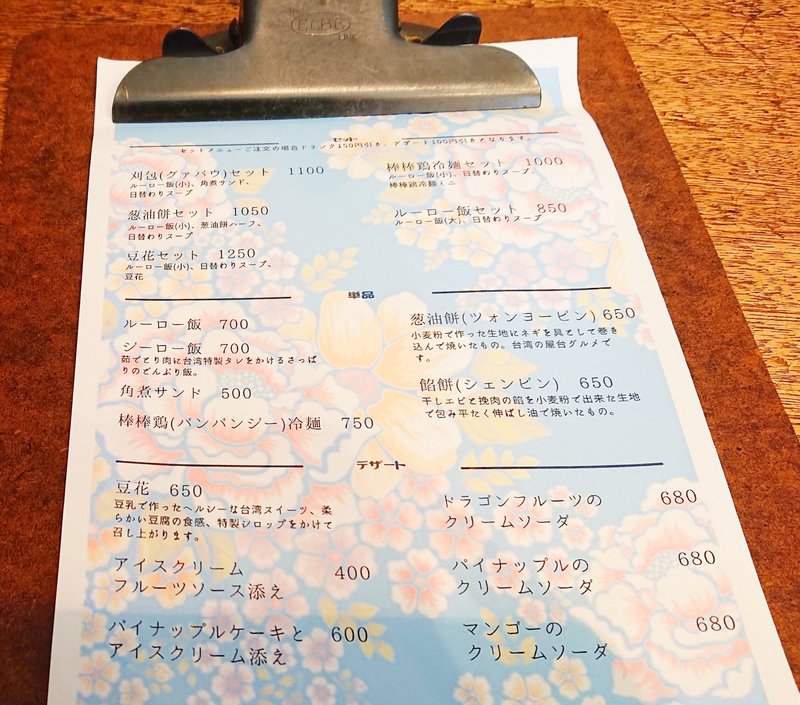 ELBE
LINE
セット
セットメニューご注文の場合ドリンク150円引き、デザート100円引きとなります。
刈包(グァバウ)セット 1100
ルーロー飯(小)、角煮サンド、
日替わりスープ
葱油餅セット 1050
ルーロー飯(小)、葱油餅ハーフ、
日替わりスープ
豆花セット 1250
ルーロー飯(小)、日替わりスープ、
豆花
棒棒鶏冷麺セット 1000
ルーロー飯(小)、日替わりスープ、
棒棒鶏冷麺ミニ
ルーロー飯セット 850
ルーロー飯(大)、日替わりスープ
単品
ルーロー飯 700
ジーロー飯 700
茹でとり肉に台湾特製タレをかけるさっぱ
りのどんぶり飯。
角煮サンド 500
棒棒鶏(バンバンジー)冷麺 750
葱油餅(ツォンヨービン) 650
小麦粉で作った生地にネギを具として巻き
込んで焼いたもの。台湾の屋台グルメで
す。
餡餅(シェンビン) 650
干しエビと挽肉の餡を小麦粉で出来た生地
で包み平たく伸ばし油で焼いたもの。
デザート
豆花 650
豆乳で作ったヘルシーな台湾スイーツ、柔
らかい豆腐の食感、特製シロップをかけて
召し上がります。
アイスクリーム
フルーツソース添え 400
パイナップルケーキと
アイスクリーム添え 600
ドラゴンフルーツの
クリームソーダ 680
パイナップルの
クリームソーダ 680
マンゴーの
クリームソーダ 680